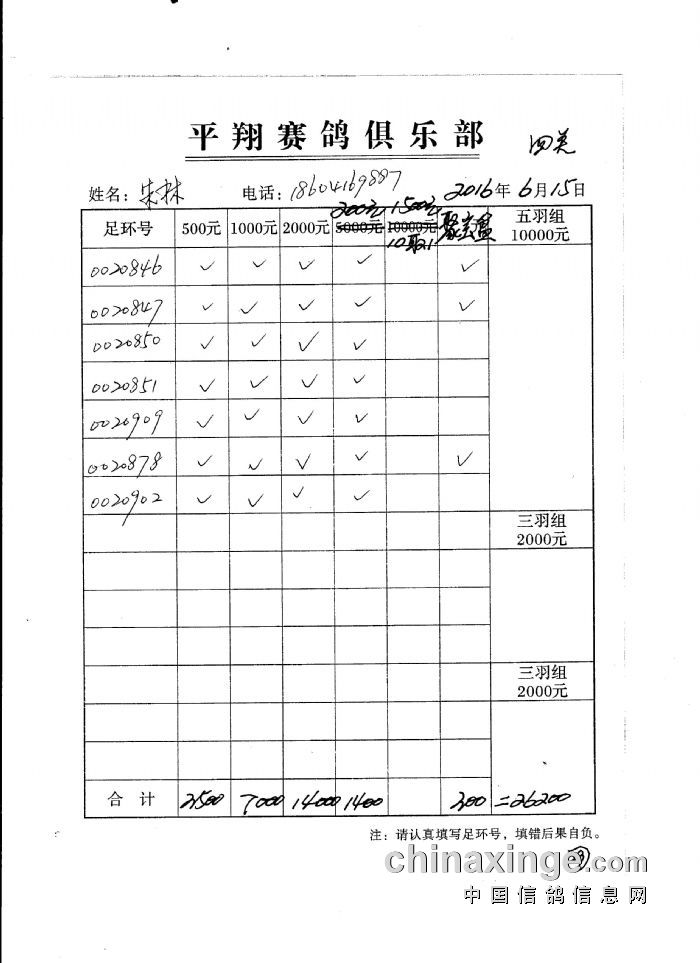 平翔赛鸽俱乐部
四关
姓名：朱林 电话：18604169887 2016年6月15日
足环号 500元 1000元 2000元 200元 5000元 1500元 10000元 10取1 聚宝盆 五羽组 10000元
0020846 ✓ ✓ ✓ ✓ ✓
0020847 ✓ ✓ ✓ ✓ ✓
0020850 ✓ ✓ ✓ ✓
0020851 ✓ ✓ ✓ ✓
0020909 ✓ ✓ ✓ ✓
0020878 ✓ ✓ ✓ ✓ ✓
0020902 ✓ ✓ ✓ ✓
三羽组
2000元
三羽组
2000元
合计 3500 7000 14000 1400 300 =26200
注：请认真填写足环号，填错后果自负。
chinaxinge.com
中国信鸽信息网